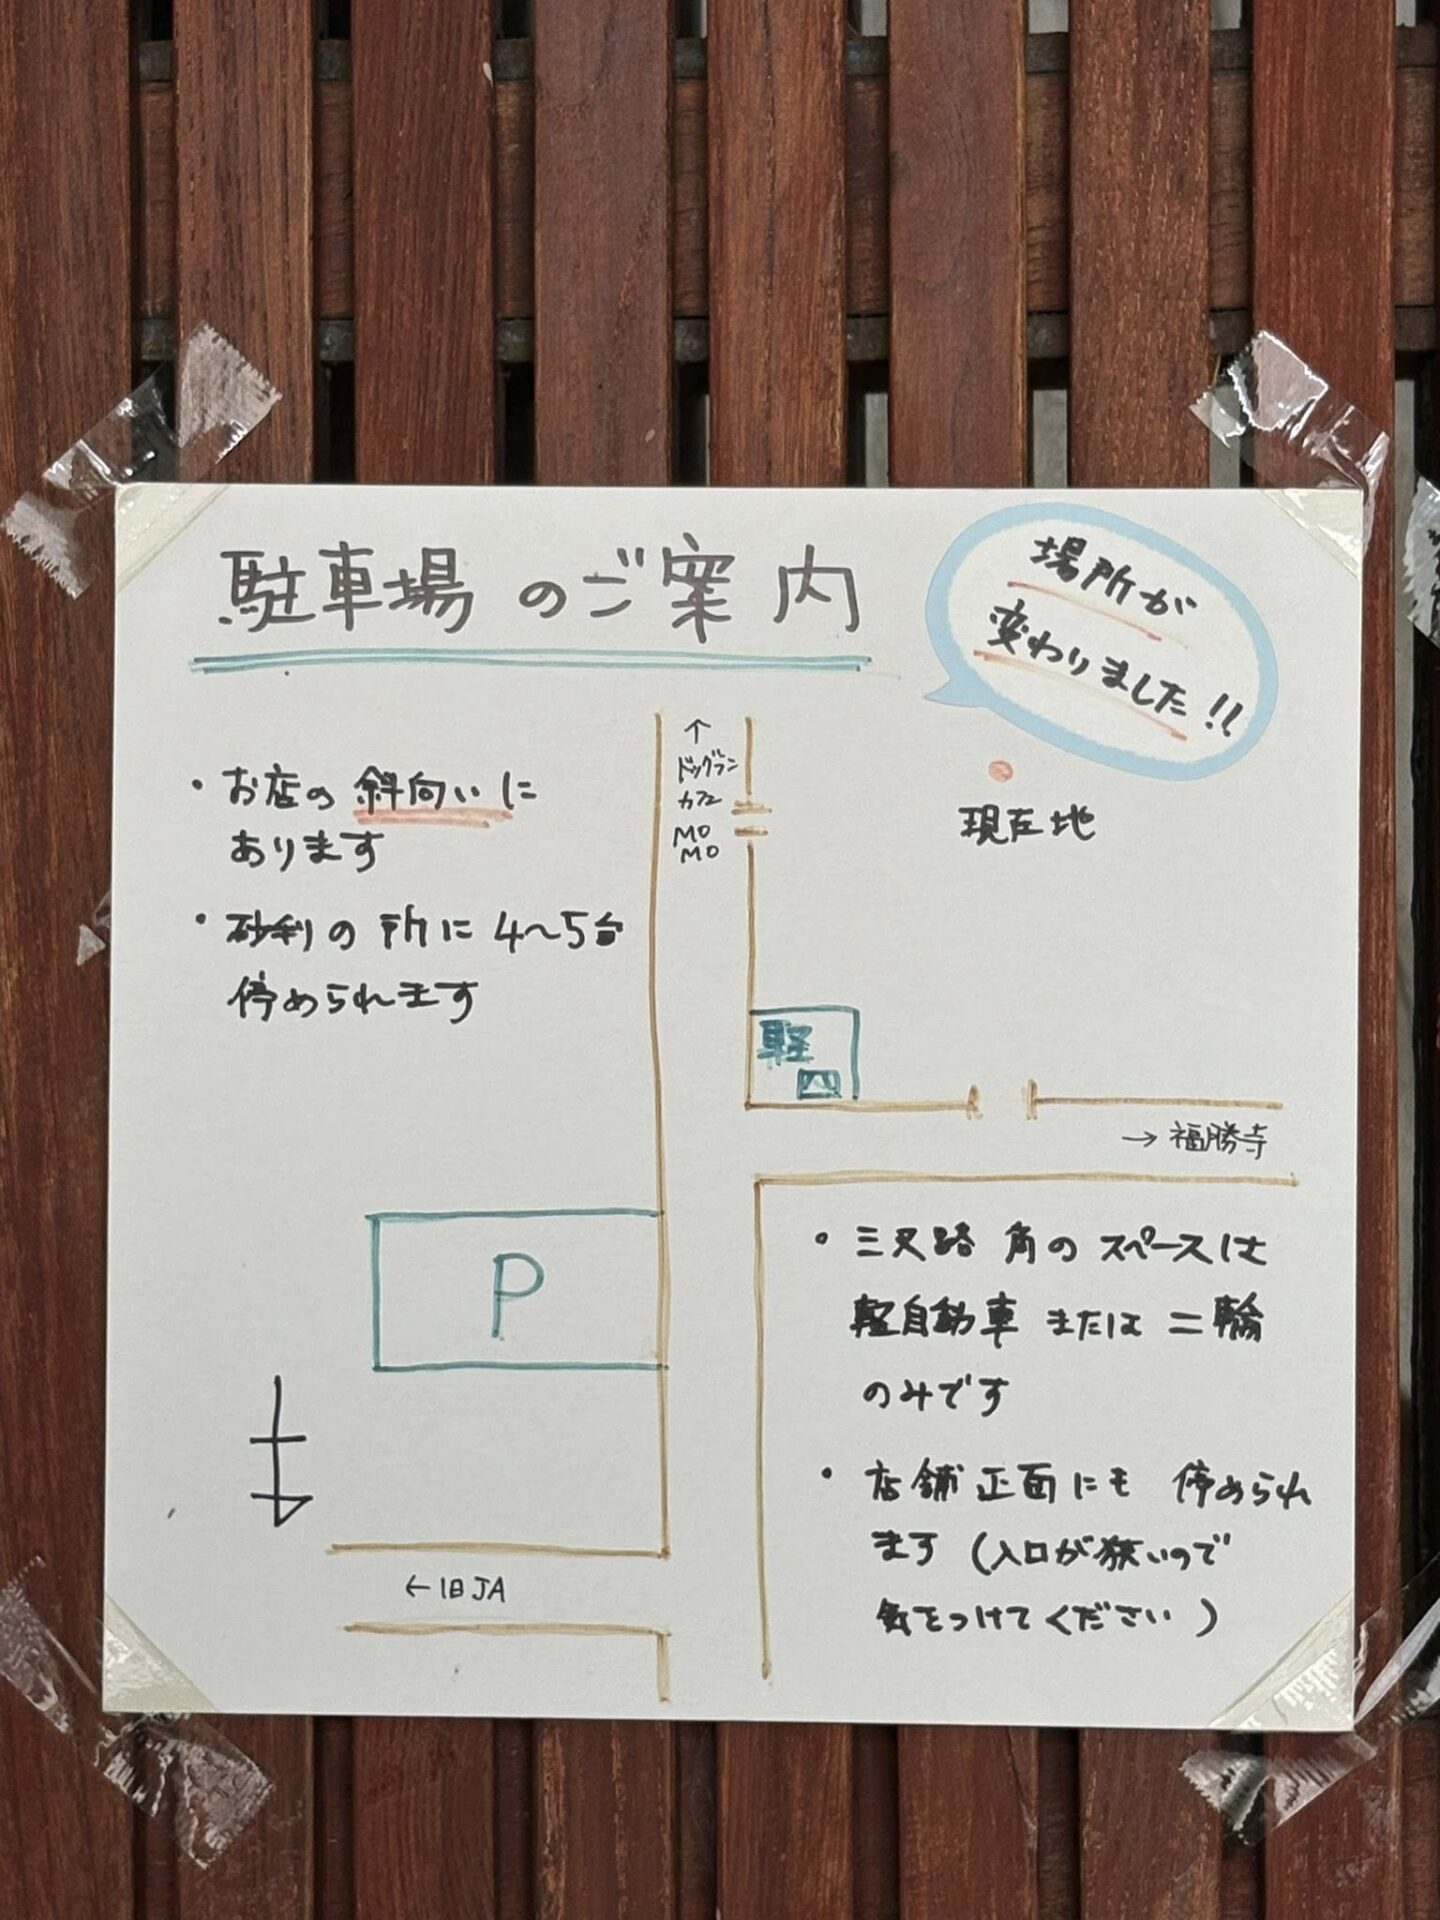 駐車場のご案内
場所が
変わりました!!
・お店の斜向いに
あります
・砂利の所に4〜5台
停められます
↑
ドッグラン
カフェ
MO
MO
現在地
軽
→福勝寺
P
・三叉路角のスペースは
軽自動車または二輪
のみです
・店舗正面にも停められ
ます(入口が狭いので
気をつけてください)
←旧JA